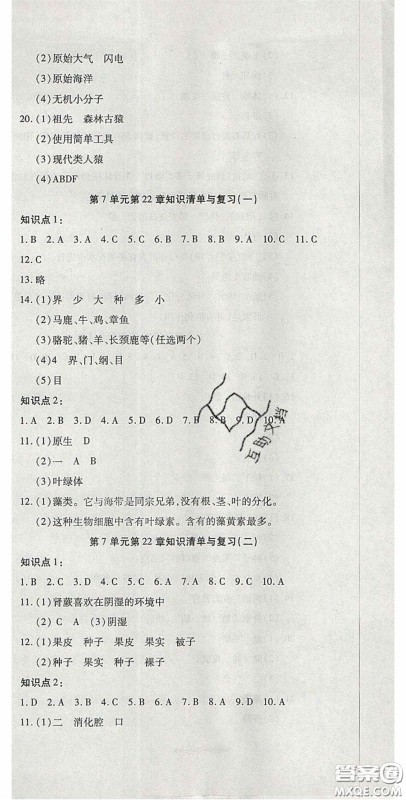 (2)原始大气　闪电
(3)原始海洋
(4)无机小分子
20.(1)祖先　森林古猿
(2)使用简单工具
(3)现代类人猿
(4)ABDF
第7单元第22章知识清单与复习(一)
知识点1:
1.B　2.A　3.A　4.C　5.C　6.C　7.B　8.B　9.A　10.C　11.C
12.C
13.略
14.(1)界　少　大　种　多　小
(2)马鹿、牛、鸡、章鱼
(3)骆驼、猪、羊、长颈鹿等(任选两个)
(4)4　界、门、纲、目
(5)目
知识点2:
1.A　2.A　3.D　4.A　5.D　6.A　7.C　8.B　9.D　10.A
11.(1)原生　D
(2)一　A　B
(3)叶绿体
12.(1)藻类。它与海带是同宗兄弟,没有根、茎、叶的分化。
(2)这种生物细胞中含有叶绿素。含有的藻黄素最多。
第7单元第22章知识清单与复习(二)
知识点1:
1.B　2.C　3.D　4.C　5.B　6.C　7.B　8.D　9.C　10.A
11.(1)肾蕨喜欢在阴湿的环境中
(2)C　A　(3)阴湿
12.(1)果皮　种子　果皮　果实　被子
(2)种子　果实　种子　裸子
知识点2:
1.D　2.A　3.D　4.C　5.D　6.A　7.B　8.D　9.D　10.A
11.(1)二　消化腔　口
互助文档
答案圈
MXQE.COM